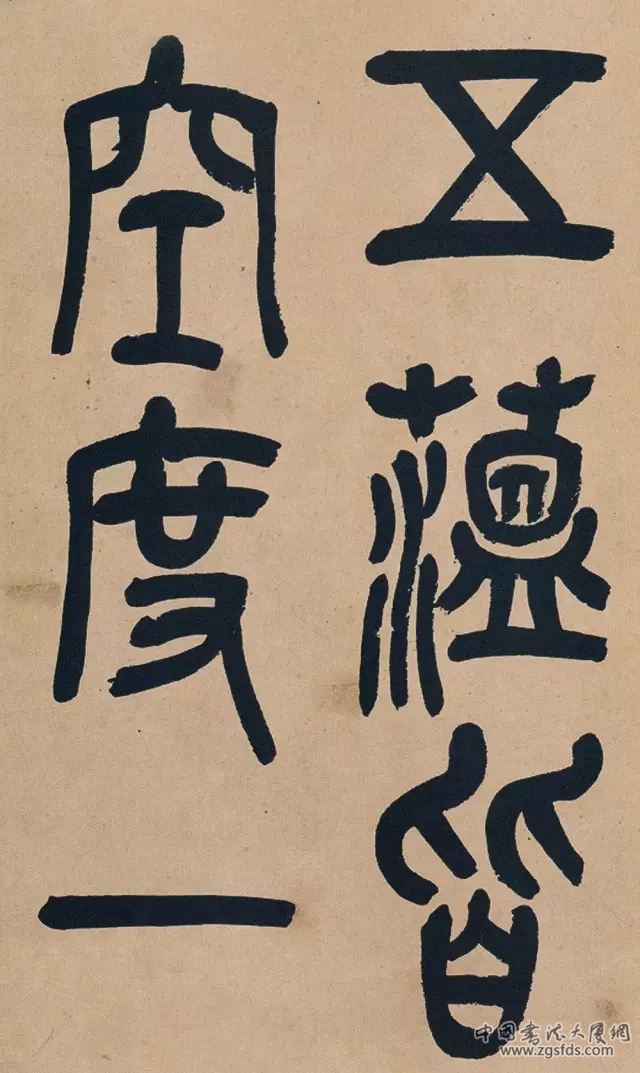 五蕴皆
空度一
中国书法大厦网
www.zgsfds.com